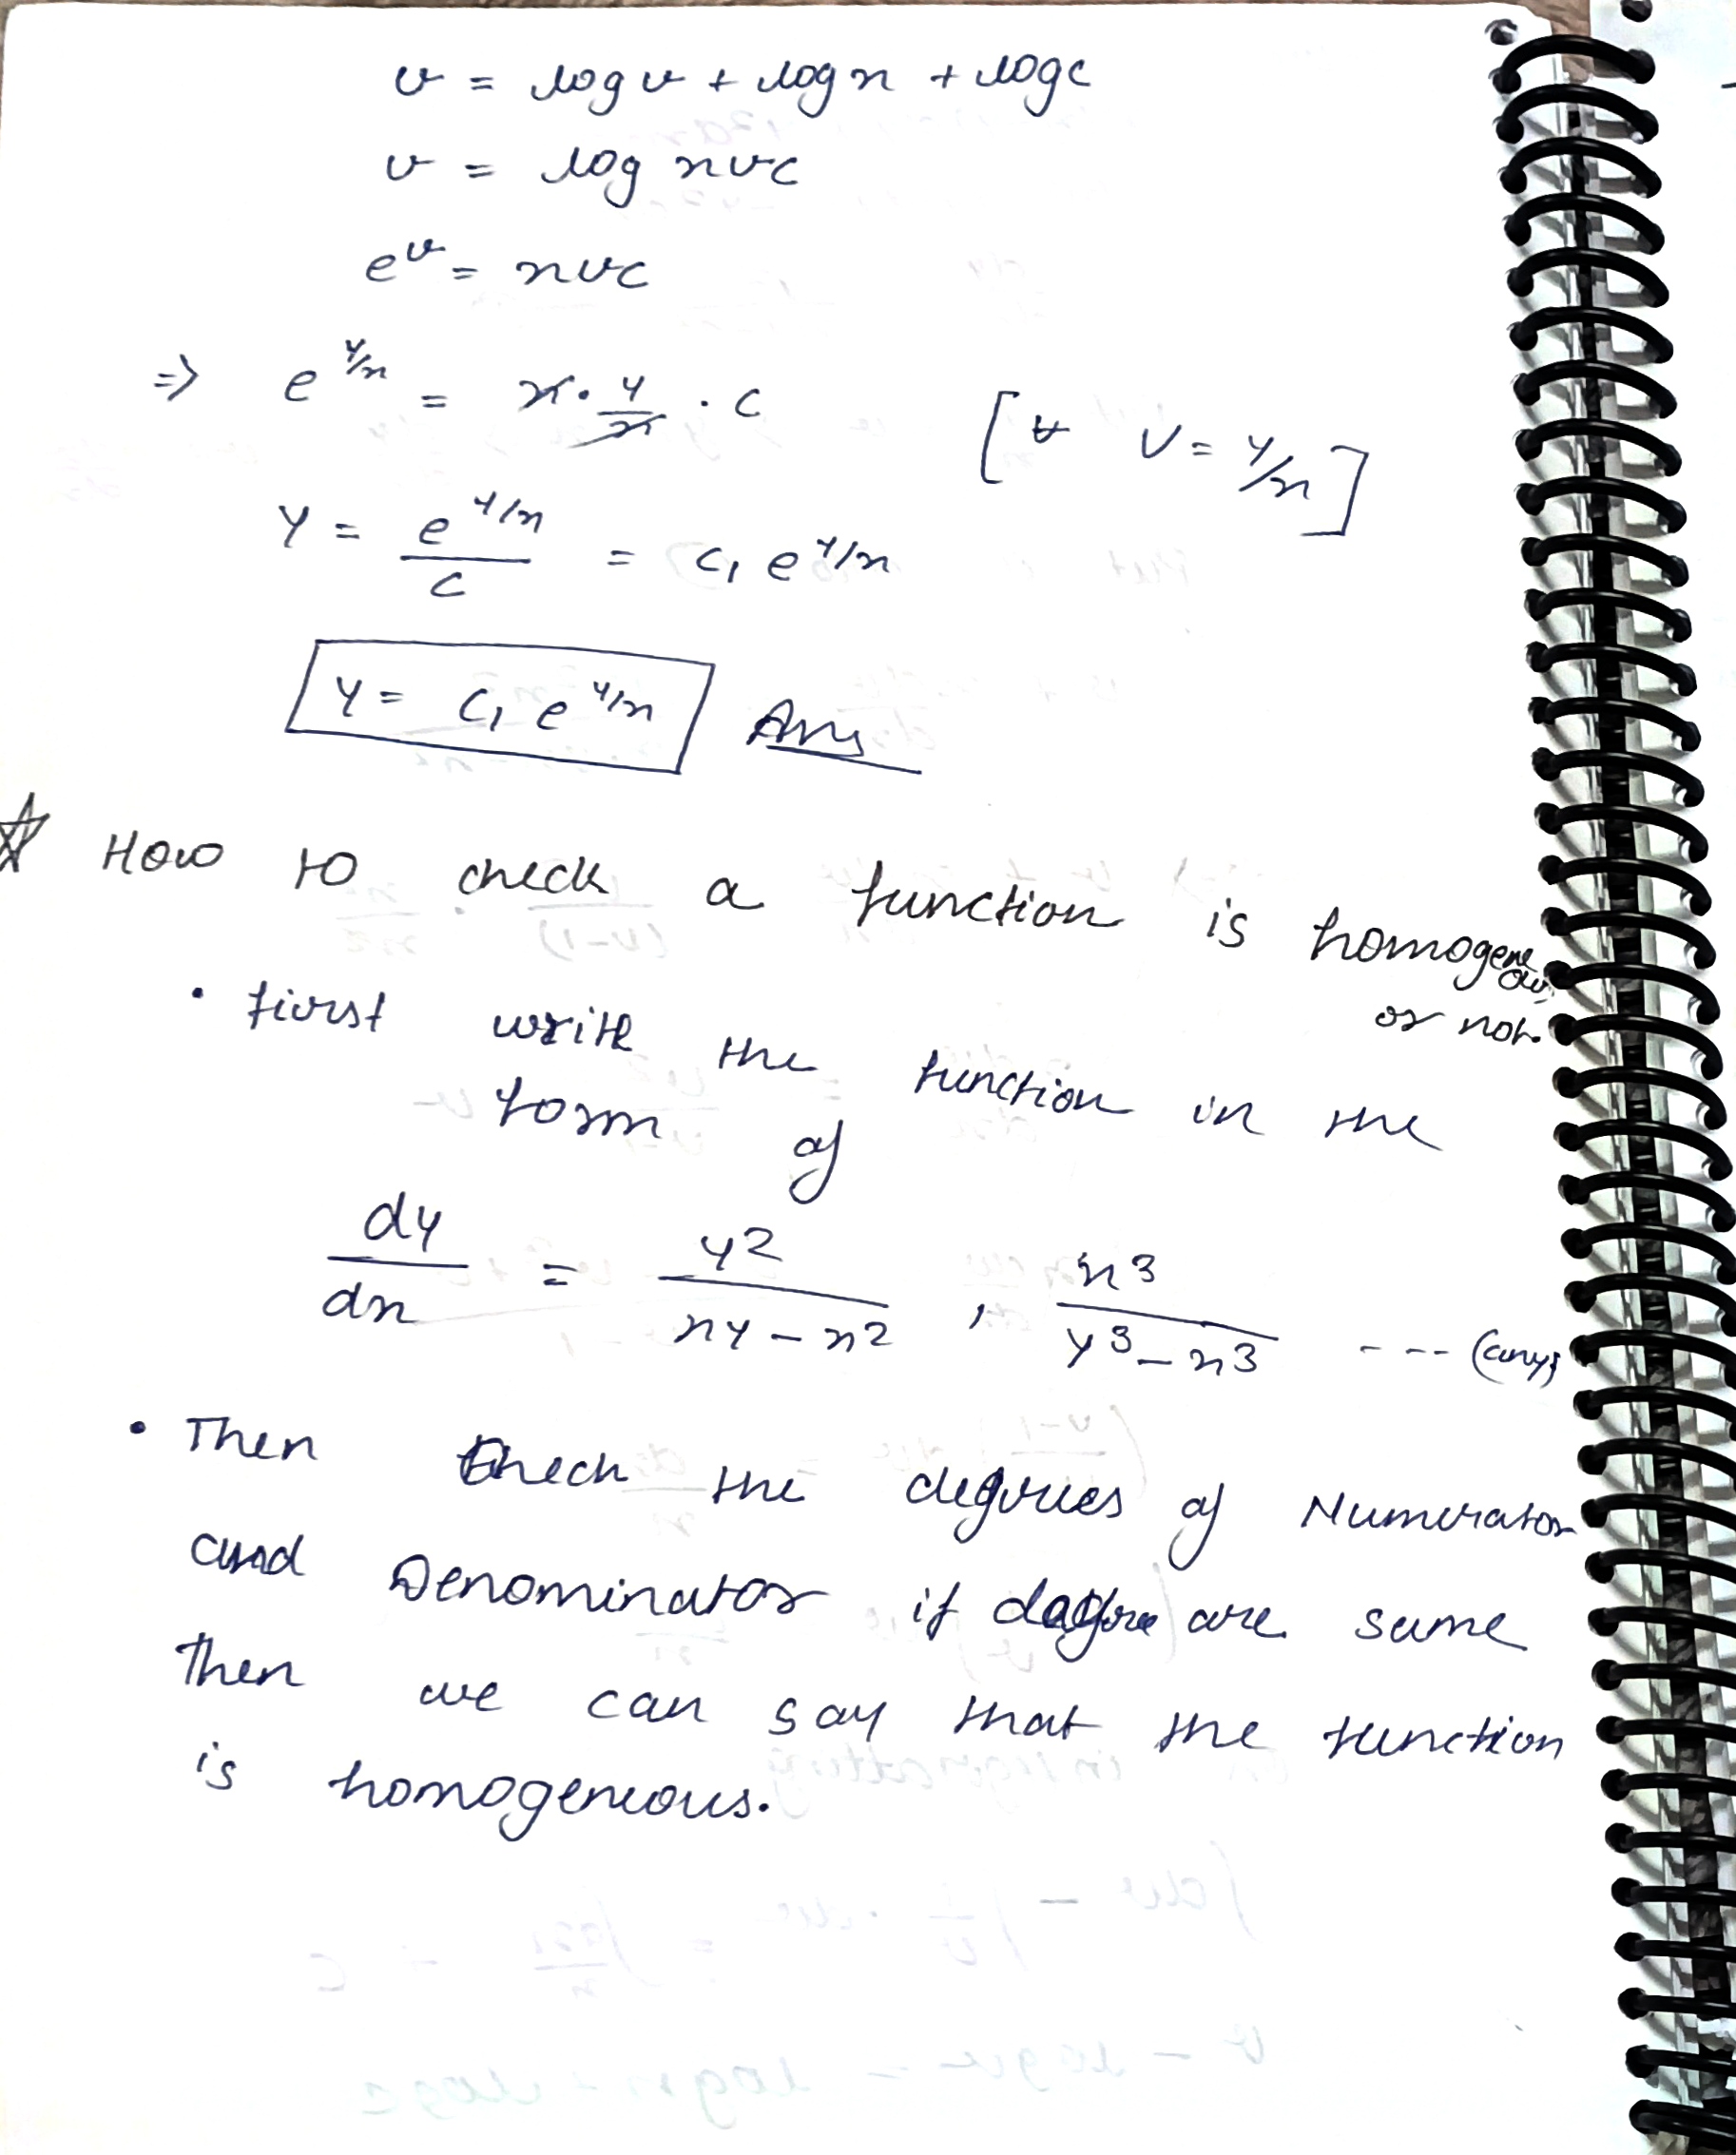 v = log v + log x + log c
v = log xvc
e^v = xvc
⇒ e^y/x = x · y/x · c [∵ V = y/x]
Y = e^y/x / c = c₁ e^y/x
Y = c₁ e^y/x Ans
☆ How to check a function is homogeneous
or not.
• first write the function in the
form of
dy/dx = y²/xy - x² , x³/y³ - x³ ---- (any)
• Then Check the degrees of Numerator
and Denominator if degree are same
Then we can say that the function
is homogeneous.